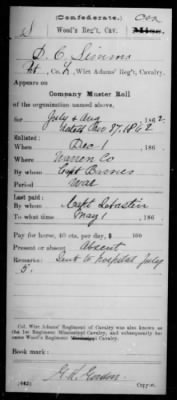 (Confederate.)
S Wood's Reg't, Cav. Con
D. C. Simms
Pvt, Co. L, Wirt Adams' Reg't, Cavalry.
Appears on
Company Muster Roll
of the organization named above,
for July & Aug, 1862
dated Nov 27, 1862
Enlisted:
When Dec 1, 186
Where Warren Co
By whom Capt Barnes
Period War
Last paid:
By whom Capt Sebastin
To what time May 1, 186
Pay for horse, 40 cts. per day, $ 100
Present or absent Absent
Remarks: Sent to hospital July
5.
Col. Wirt Adams' Regiment of Cavalry was also known as
the 1st Regiment Mississippi Cavalry, and subsequently became
Wood's Regiment Mississippi Cavalry.
Book mark:
(642)
Copyist.